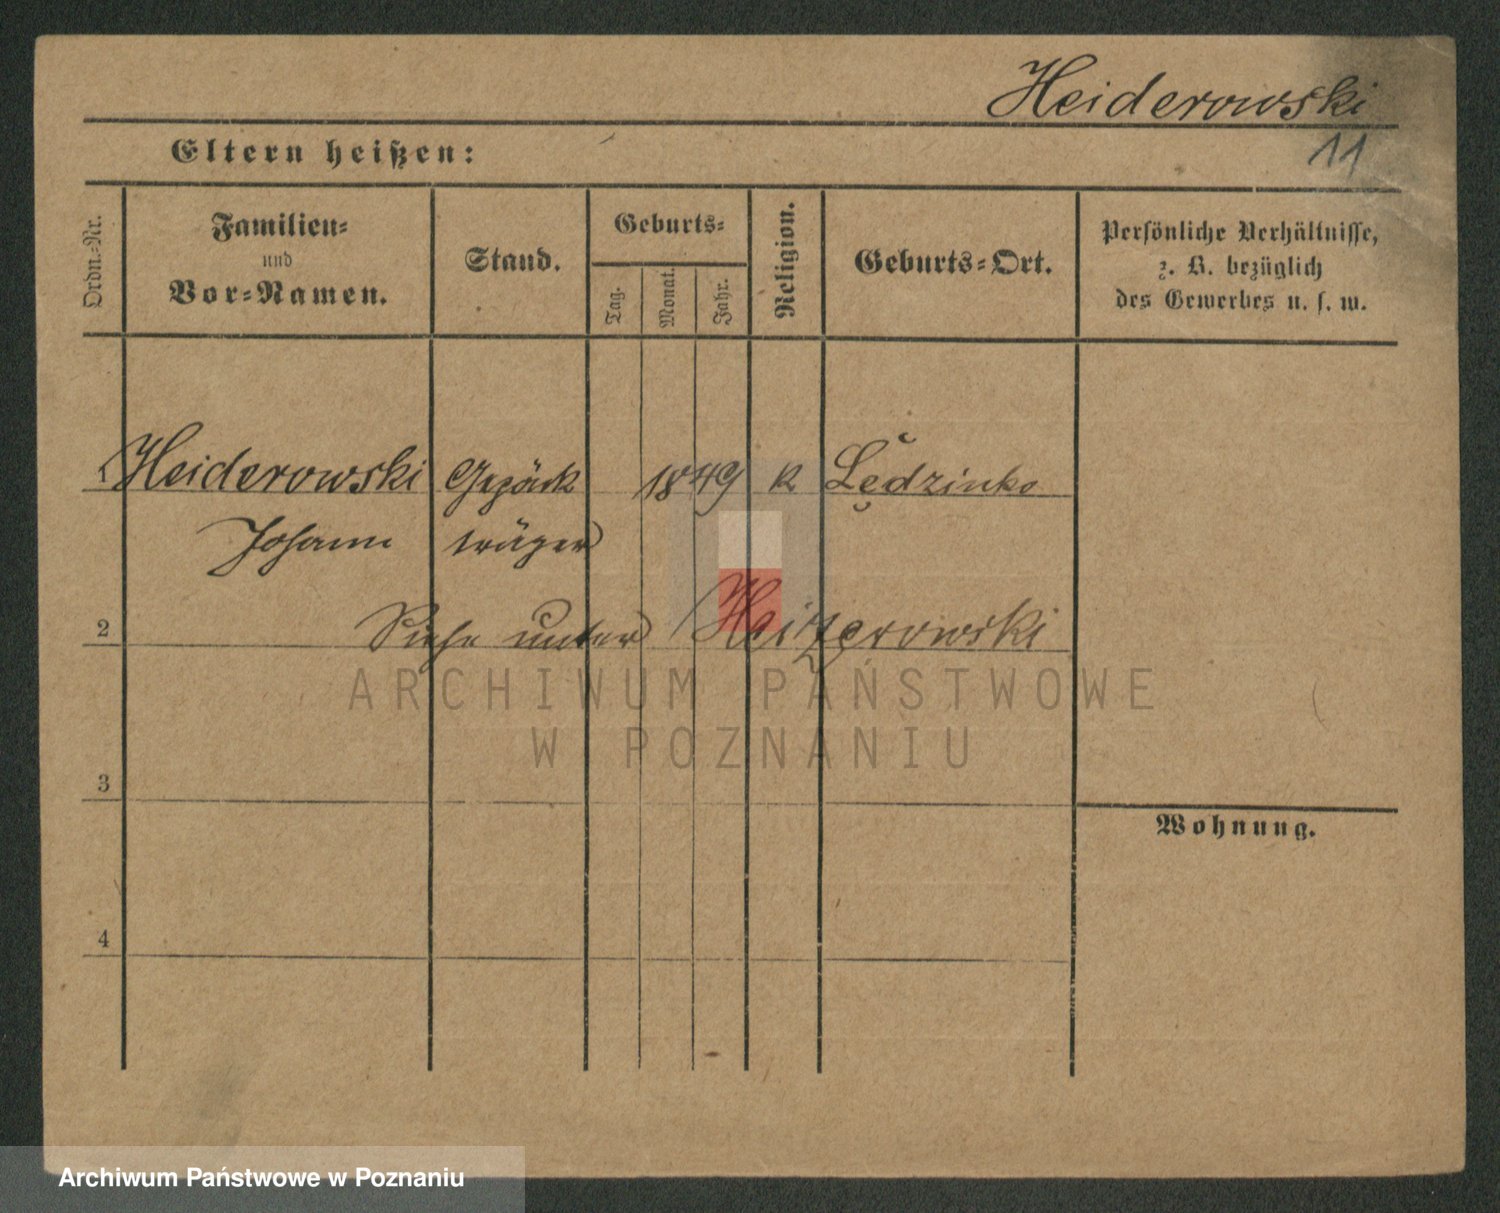 Heiderowski
11
Eltern heißen:
Ordn.-Nr.
Familien-
und
Vor-Namen.
Stand.
Geburts-
Tag.
Monat.
Jahr.
Religion.
Geburts-Ort.
Persönliche Verhältnisse,
z. B. bezüglich
des Gewerbes u. s. w.
1 Heiderowski Gepäck 1849 K Lędzinko
Johann träger
2 Siehe unter Heizerowski
ARCHIWUM PAŃSTWOWE
W POZNANIU
3
Wohnung.
4
Archiwum Państwowe w Poznaniu